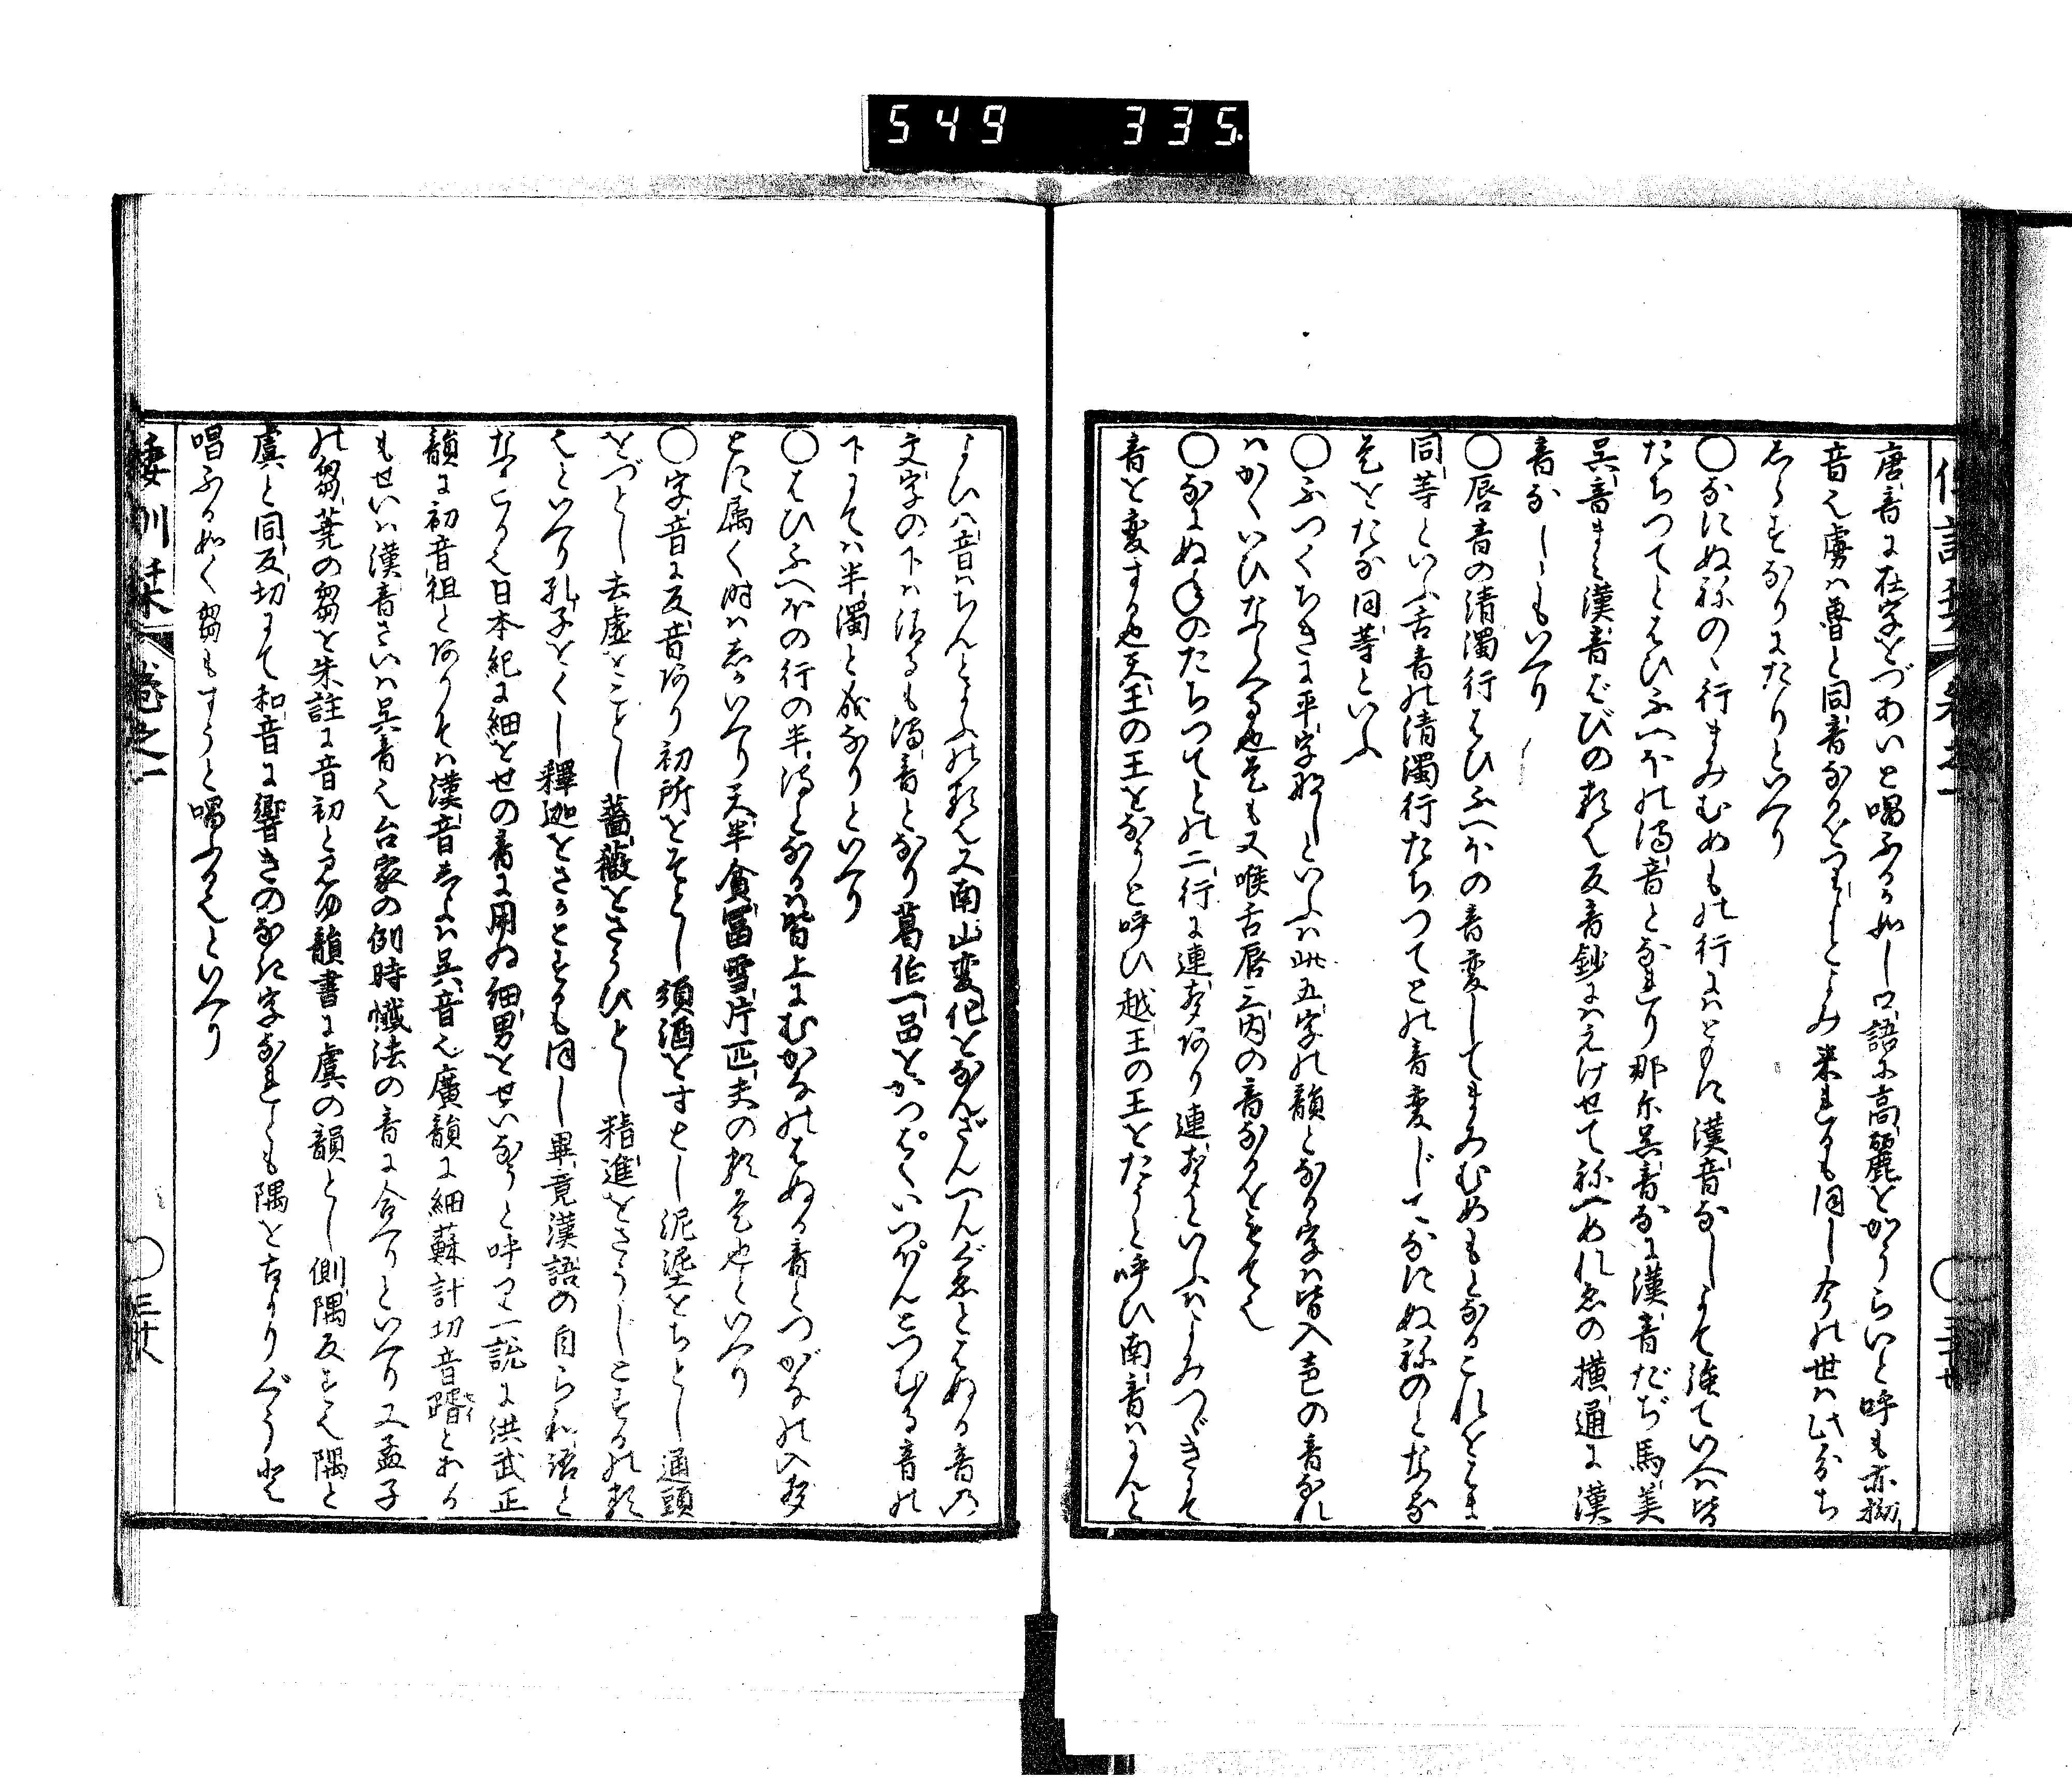 549 335
唐音に在字をづあいと唱ふる如し口語に高麗をかうらいと呼も亦拗
音也虜は魯と同音なるをりよとよみ来れるも同し今の世は此分ち
しらすなりにたりといへり
○なにぬねの〻行まみむめもの行にはともに漢音なしよて強ていへは皆
たちつてとはひふへほの濁音となれり那尓呉音なに漢音だぢ馬美
呉音まみ漢音ばびの類也反音鈔にはえけせて祢へめれゑの横通に漢
音なしともいへり
○唇音の清濁行はひふへほの音変してまみむめもとなるこれをとま
同等といふ舌音の清濁行たちつてとの音変してなにぬねのとなる
是をたな同等といふ
○ふつくちきに平字なしといふは此五字の韻となる字は皆入声の音なれ
はかくいひならへる也是も又喉舌唇三内の音なるをもて也
○なにぬねのたちつてとの二行に連声あり連声といふはよみつゞきにて
音を変する也天王の王をなうと呼ひ越王の王をたうと呼ひ南音はなんと
よひ八音はちんとよふの類也又南山変化をなんざんへんぐゑとはぬる音の
文字の下は清るも濁音となり葛作一品をかつぱくいつぽんとつむる音の
下にては半濁と成なりといへり
○はひふへほの行の半濁となるは皆上にむかなのはぬる音とつがなの入声
とに属く時はしかいへり天半貪冨雪片匹夫の類是也といへり
○字音に反音あり初所をそとし須酒をすとし泥埿をちとし通頭
をづとし去虚をことし薔薇をさうひとし精進をさうじとするの類
也といへり孔子をくし釋迦をさかとするも同し畢竟漢語の自ら和語と
なれる也日本紀に細をせの音に用ゐ細男をせいなうと呼り一説に洪武正
韻に初音徂とありそは漢音しよは呉音也廣韻に細蘇計切音壻とある
もせいは漢音さいは呉音也台家の例時懺法の音に合へりといへり又孟子
の芻蕘の芻を朱註に音初と見ゆ韻書に虞の韻とし側隅反とす也隅と
虞と同反切にて和音に響きのなき字なれとも隅を古よりぐうと
唱ふる如く芻もすうと唱ふる也といへり
倭訓栞 巻之一 ○三十八